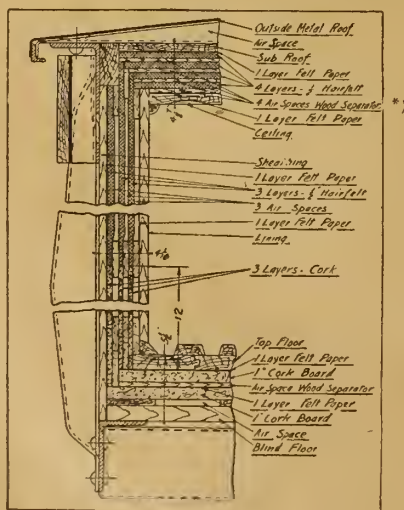 Outside Metal Roof
Air Space
Sub Roof
1 Layer Felt Paper
4 Layers - ½ Hairfelt
4 Air Spaces Wood Separator
1 Layer Felt Paper
Ceiling
Sheathing
1 Layer Felt Paper
3 Layers - ½" Hairfelt
3 Air Spaces
1 Layer Felt Paper
Lining
3 Layers - Cork
12
Top Floor
1 Layer Felt Paper
1" Cork Board
Air Space Wood Separator
1 Layer Felt Paper
1" Cork Board
Air Space
Blind Floor